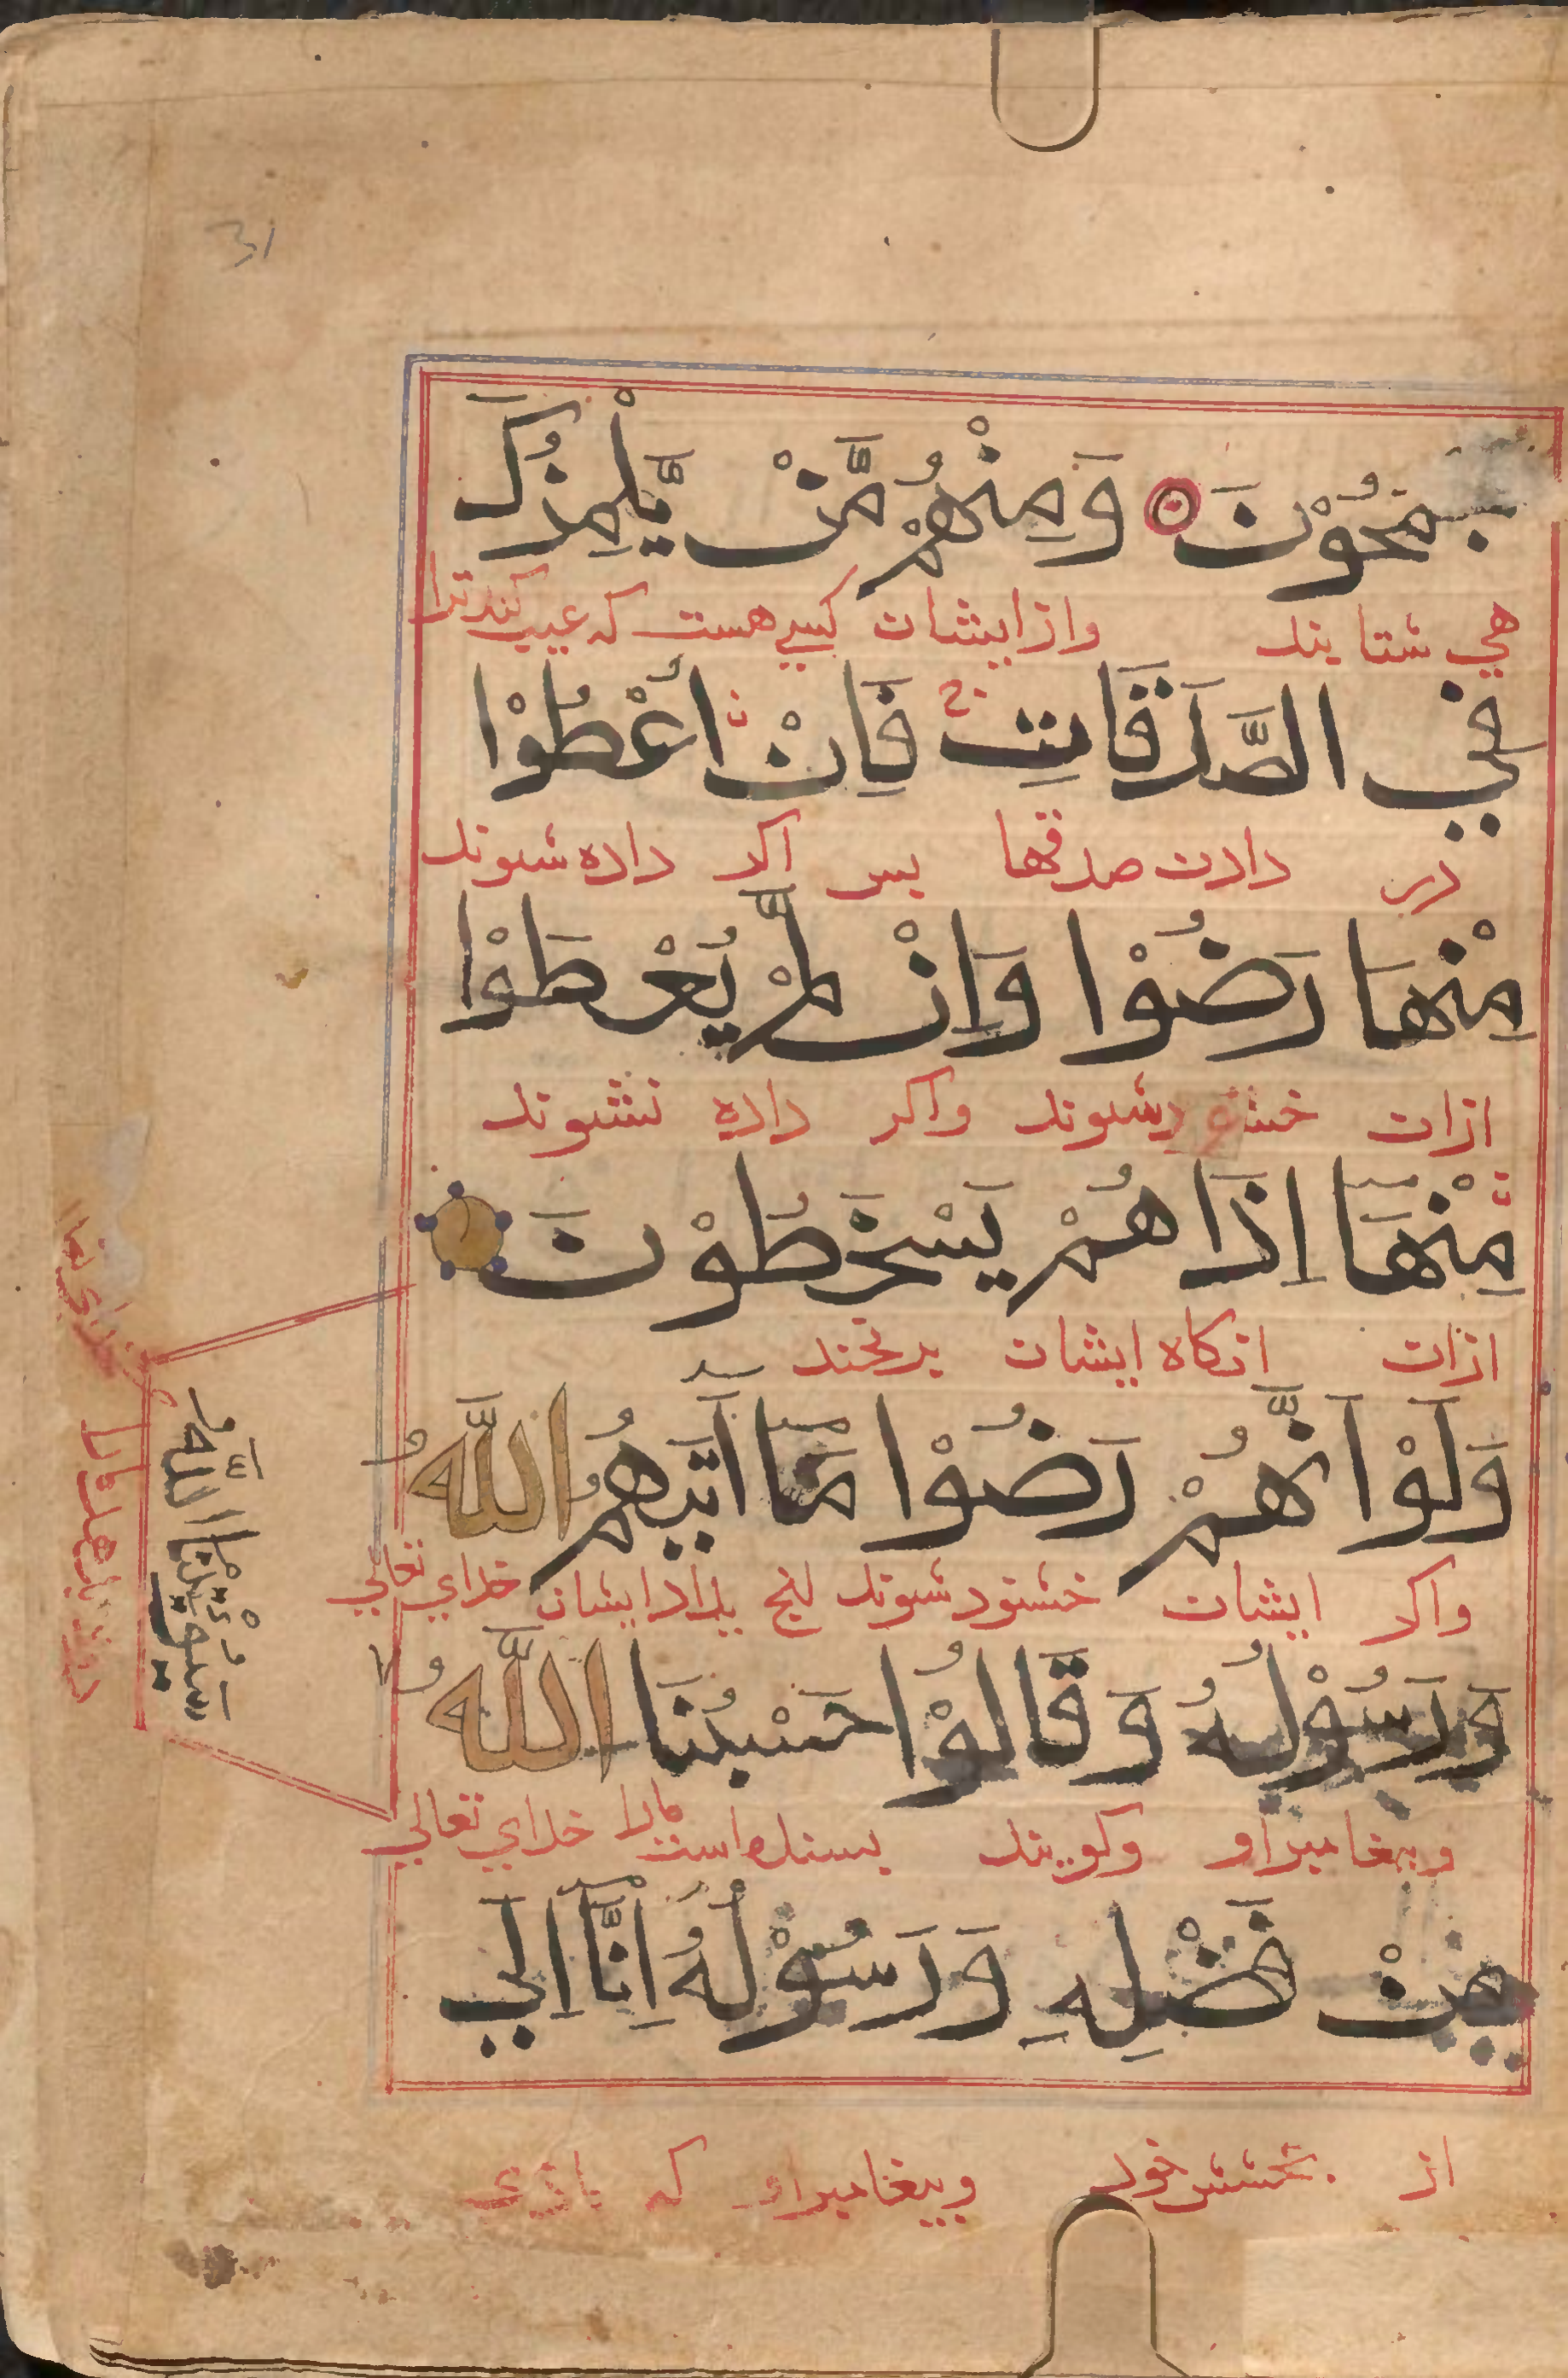 31
يَجْمَحُوْنَ وَمِنْهُمْ مَّنْ يَّلْمِزُكَ
مي شتابند وازايشان كسي هست كه عيب كند ترا
فِي الصَّدَقَاتِ فَاِنْ اُعْطُوْا
در دادن صدقها پس اكر داده شوند
مِنْهَا رَضُوْا وَاِنْ لَّمْ يُعْطَوْا
ازان خشنود شوند واكر داده نشوند
مِنْهَآ اِذَا هُمْ يَسْخَطُوْنَ
ازان انكاه ايشان برنجند
وَلَوْ اَنَّهُمْ رَضُوْا مَآ اٰتٰىهُمُ اللّٰهُ
واكر ايشان خشنود شوند بداد ايشان خداي تعالي
وَرَسُوْلُهُ وَقَالُوْا حَسْبُنَا اللّٰهُ
وپيغامبر او وكويند بسنده است مارا خداي تعالي
سَيُؤْتِيْنَا اللّٰهُ
خداي تعا
مِنْ فَضْلِهِ وَرَسُوْلُهُ اِنَّا اِلَي
از بخشش خود وپيغامبر او كه